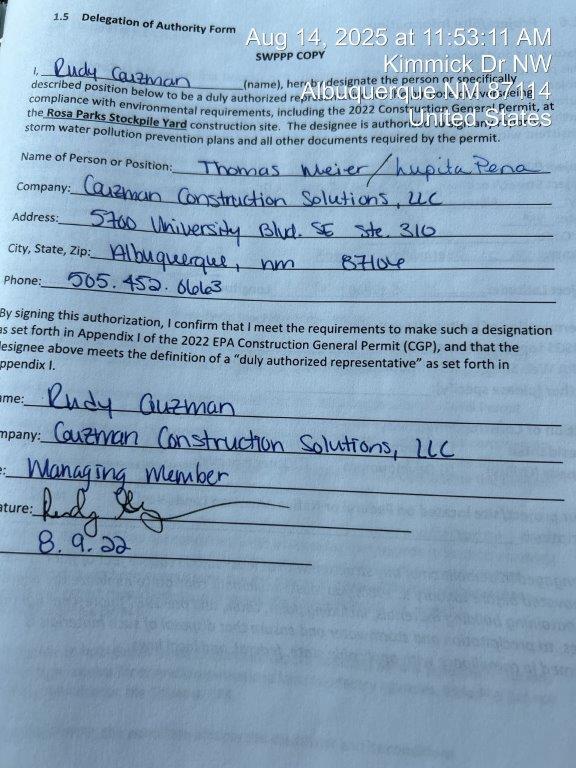 1.5 Delegation of Authority Form
Aug 14, 2025 at 11:53:11 AM
SWPPP COPY
Kimmick Dr NW
Albuquerque NM 87114
United States
I, Rudy Guzman (name), hereby designate the person or specifically
described position below to be a duly authorized
compliance with environmental requirements, including the 2022 Construction General Permit, at
the Rosa Parks Stockpile Yard construction site. The designee is authorized
storm water pollution prevention plans and all other documents required by the permit.
Name of Person or Position: Thomas Meier / Lupita Pena
Company: Guzman Construction Solutions, LLC
Address: 5700 University Blvd. SE Ste. 310
City, State, Zip: Albuquerque, nm 87106
Phone: 505.452.0663
By signing this authorization, I confirm that I meet the requirements to make such a designation
as set forth in Appendix I of the 2022 EPA Construction General Permit (CGP), and that the
esignee above meets the definition of a “duly authorized representative” as set forth in
ppendix I.
me: Rudy Guzman
mpany: Guzman Construction Solutions, LLC
e: Managing Member
ature:
8.9.22